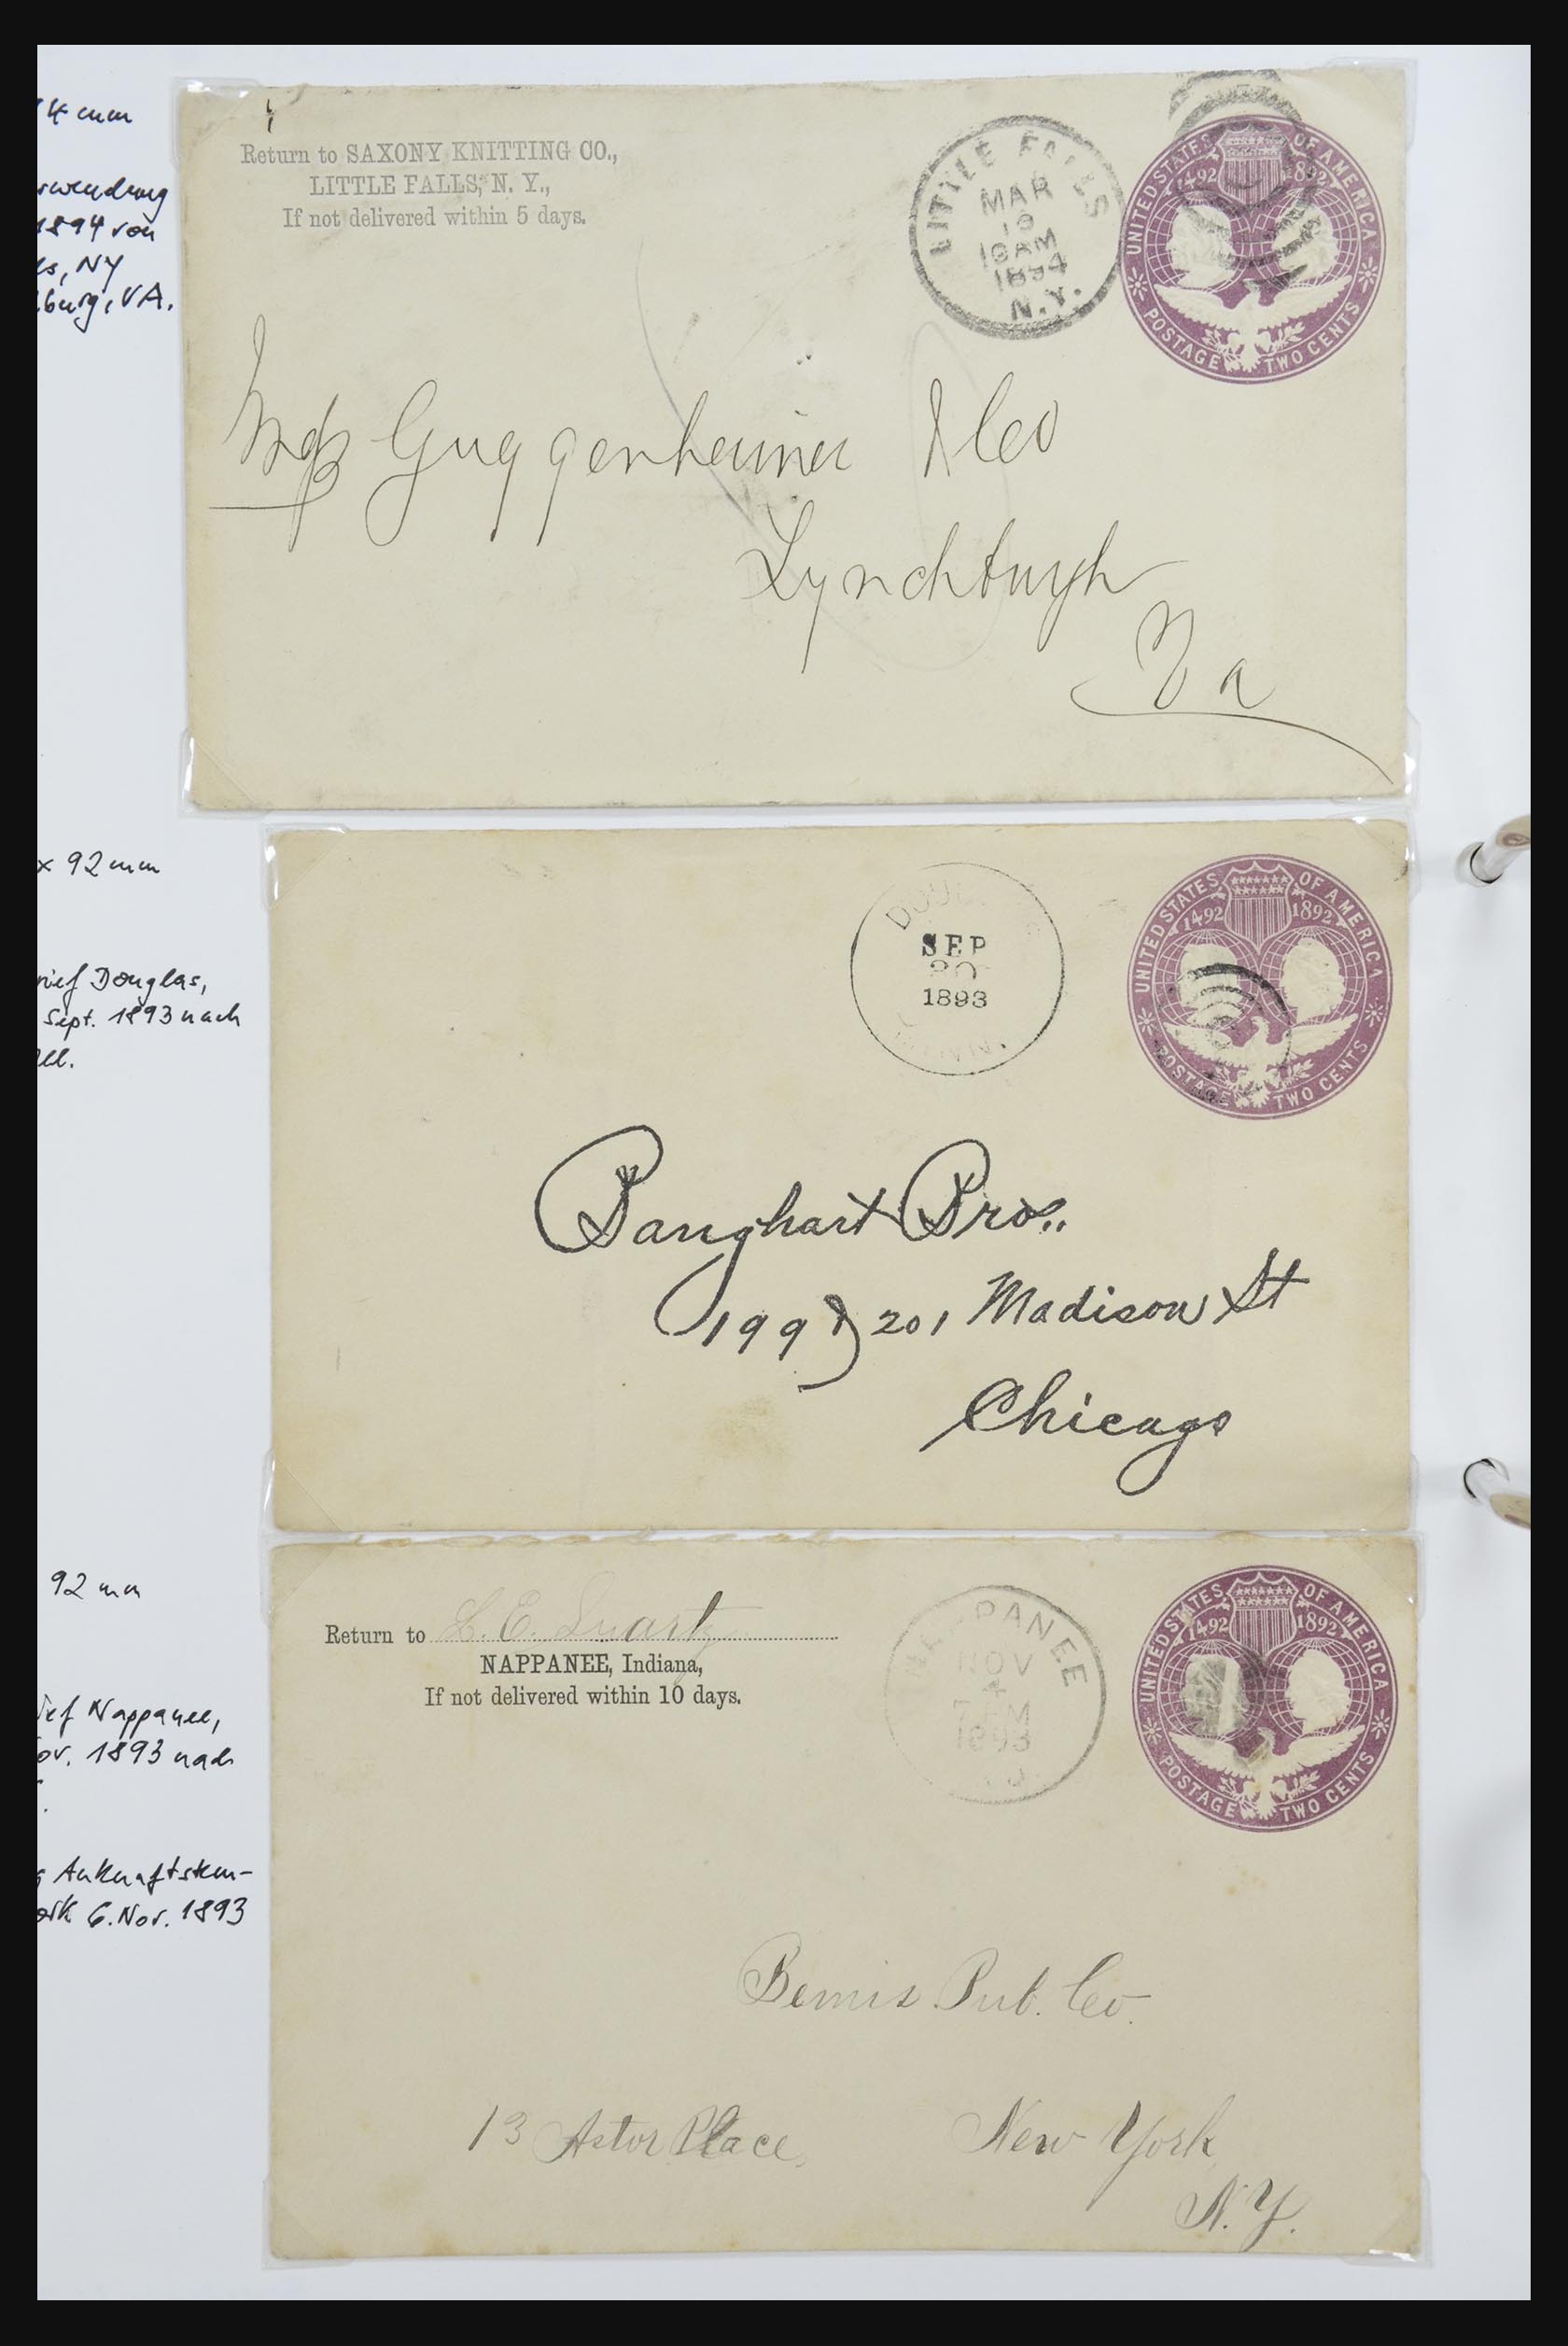 4 mm
1894 von
NY
burg, VA.
Return to SAXONY KNITTING CO.,
LITTLE FALLS, N. Y.,
If not delivered within 5 days.
LITTLE FALLS
MAR
1894
N.Y.
UNITED STATES OF AMERICA
1492 1892
POSTAGE TWO CENTS
Guggenheimer & Co
Lynchburgh
Va
x 92 mm
Douglas,
Sept. 1893 nach
SEP
1893
UNITED STATES OF AMERICA
1492 1892
POSTAGE TWO CENTS
Banghart Bros.,
199 & 201 Madison St
Chicago
92 mm
Nappanee,
ov. 1893 nach
Ankunftstem-
6. Nov. 1893
Return to L. E.
NAPPANEE, Indiana,
If not delivered within 10 days.
NAPPANEE
NOV
4
1893
UNITED STATES OF AMERICA
1492 1892
POSTAGE TWO CENTS
Bemis Pub. Co.
13 Astor Place, New York
N.Y.